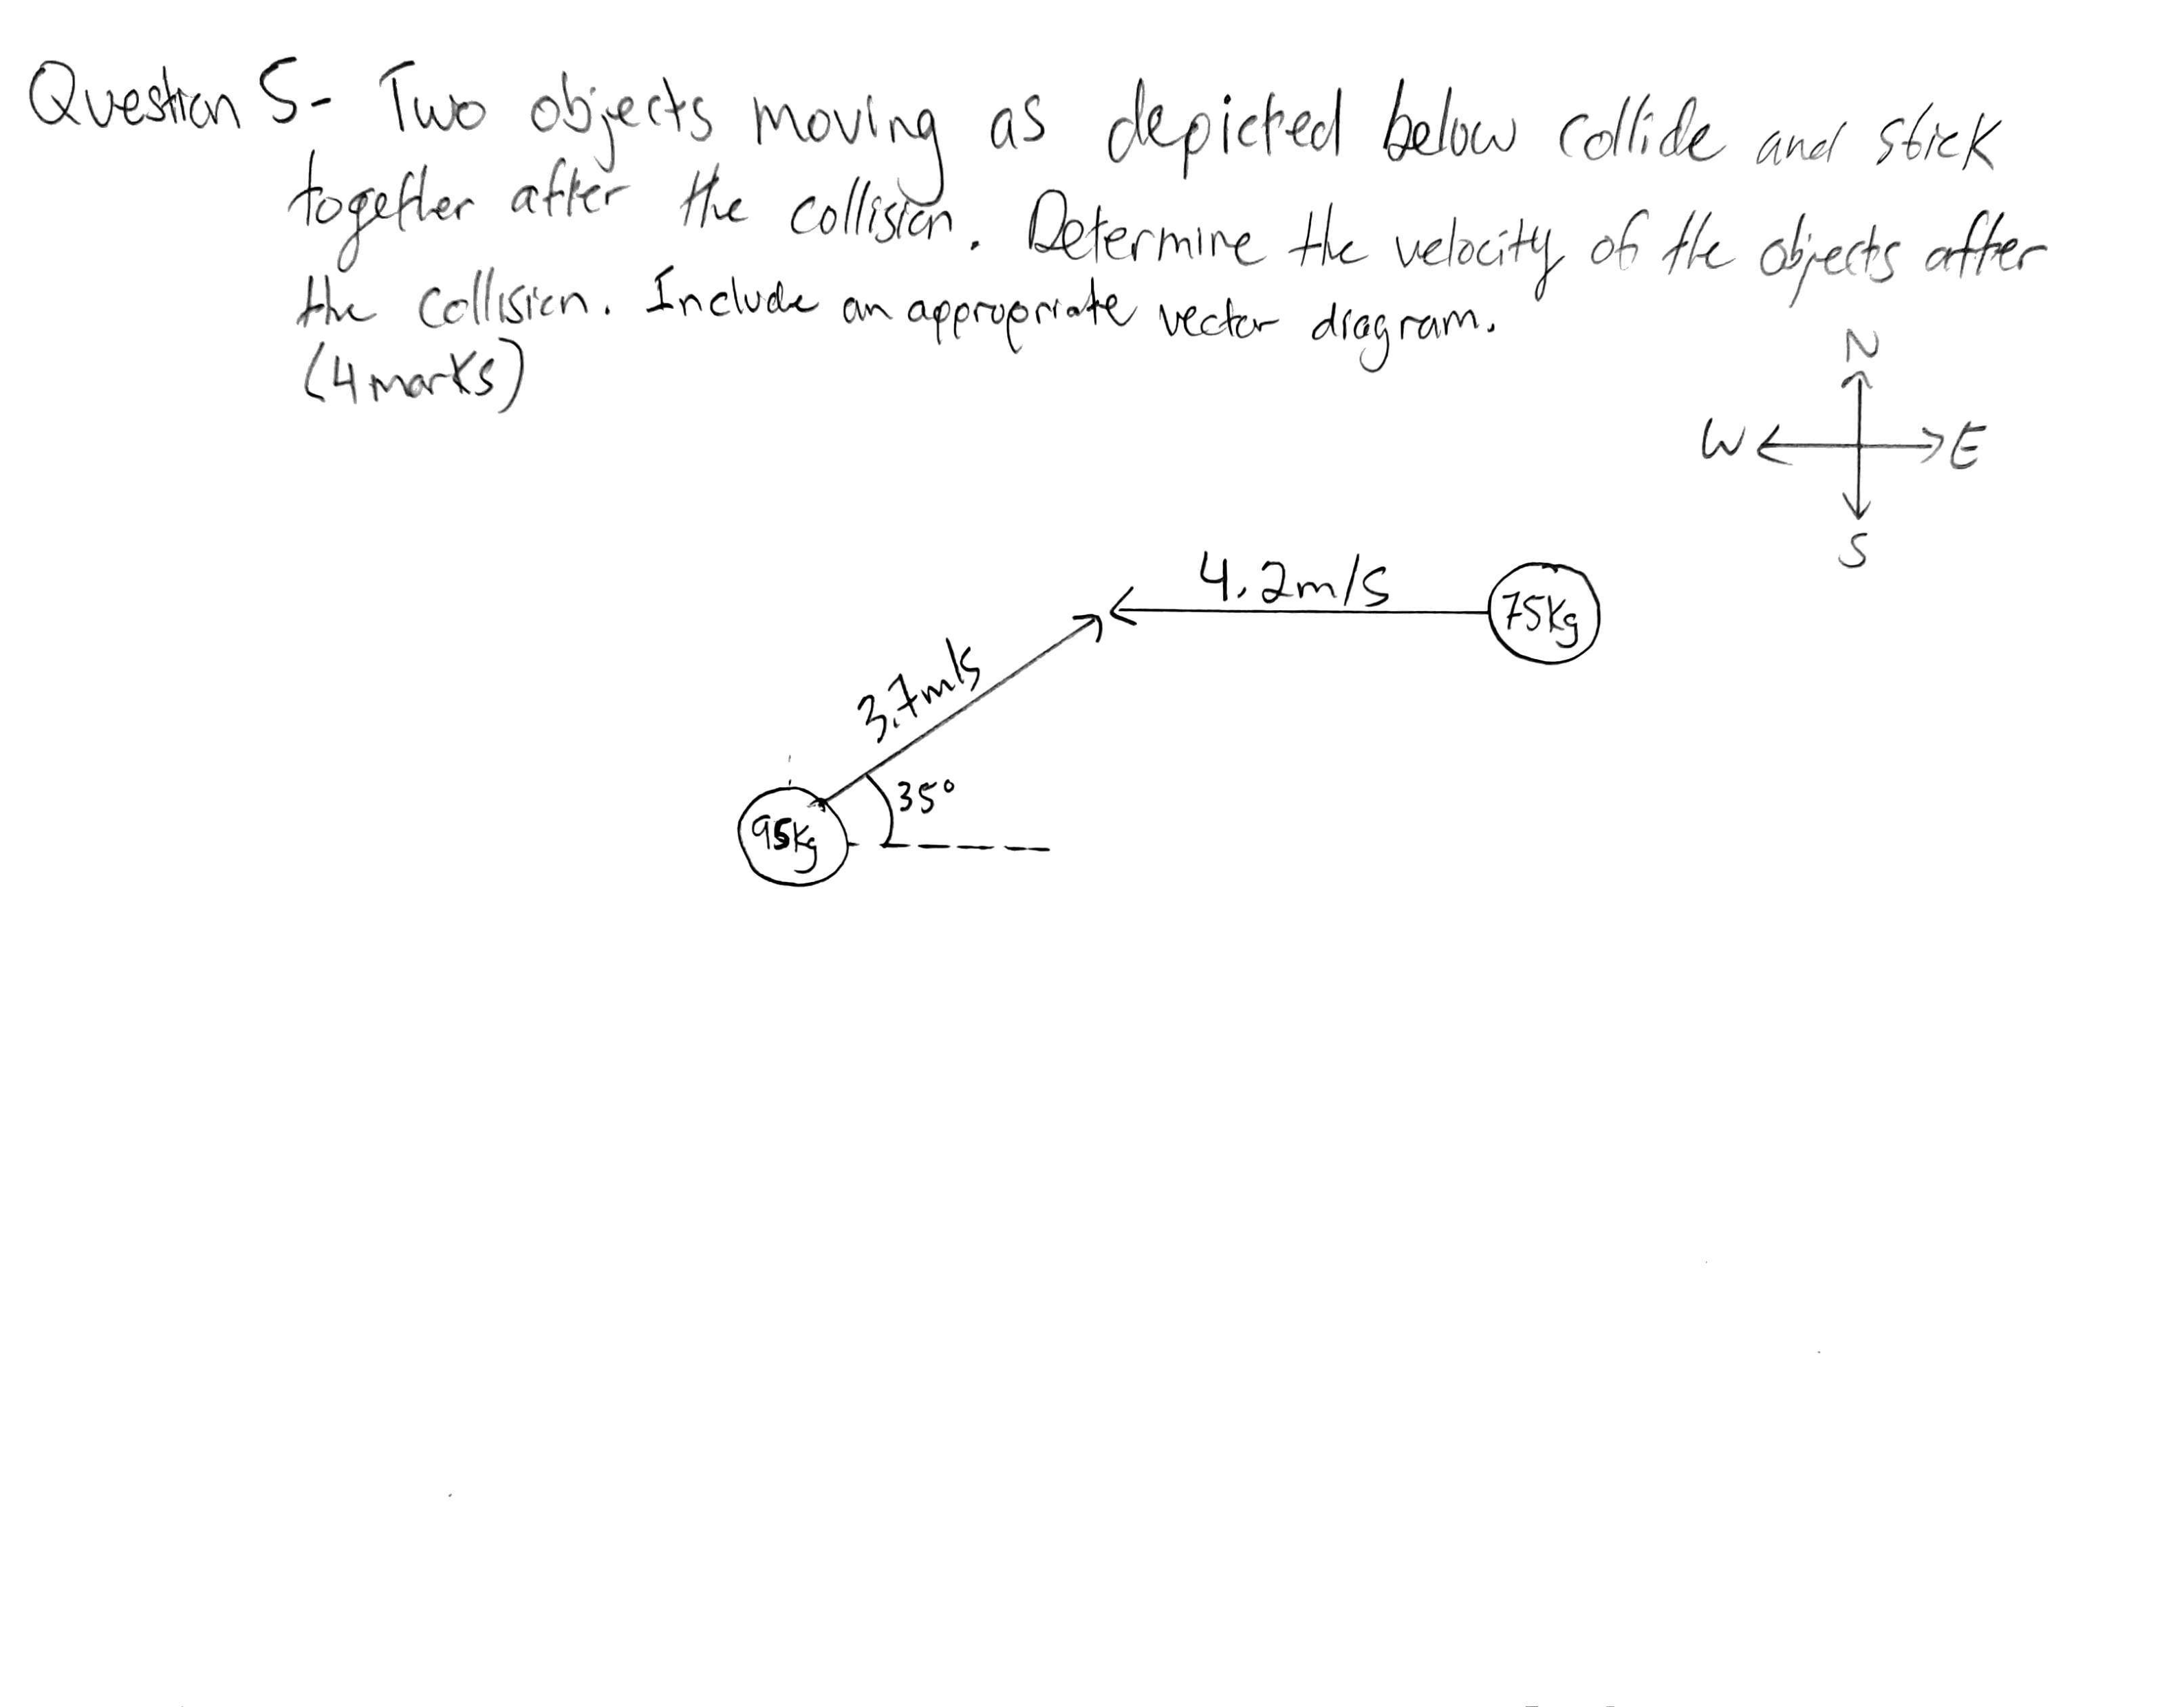 Question 5- Two objects moving as depicted below collide and stick
together after the collision. Determine the velocity of the objects after
the collision. Include an appropriate vector diagram.
(4 marks)
N
W E
S
4.2m/s
75kg
3.7m/s
35°
95kg